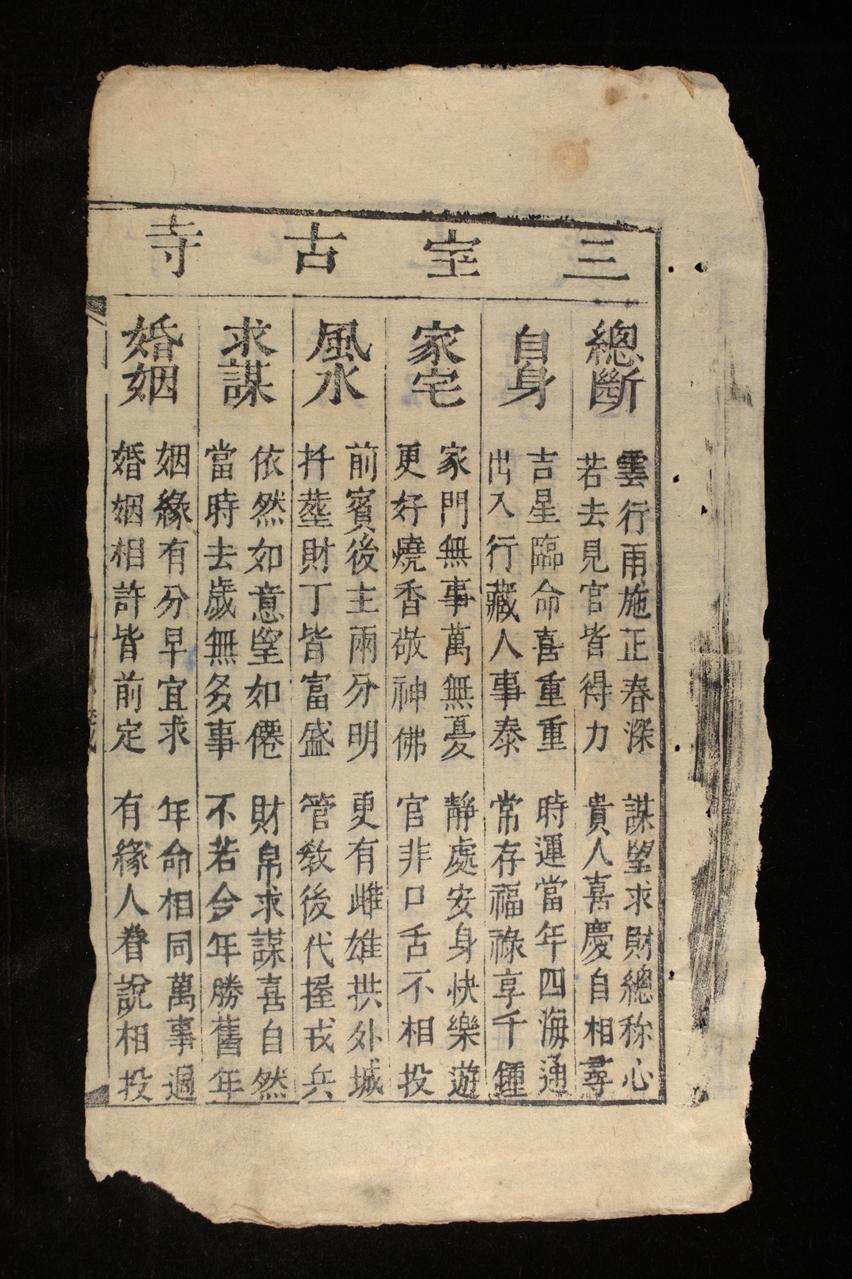 三宝古寺
總斷
雲行雨施正春深 謀望求財總称心
若去見官皆得力 貴人喜慶自相尋
自身
吉星臨命喜重重 時運當年四海通
出入行藏人事泰 常存福祿享千鍾
家宅
家門無事萬無憂 静處安身快樂遊
更好燒香敬神佛 官非口舌不相投
風水
前賓後主兩分明 更有雌雄拱外城
扦塟財丁皆富盛 管教後代握戎兵
求謀
依然如意望如僊 財帛求謀喜自然
當時去歲無多事 不若今年勝舊年
婚姻
姻緣有分早宜求 年命相同萬事週
婚姻相許皆前定 有緣人眷說相投